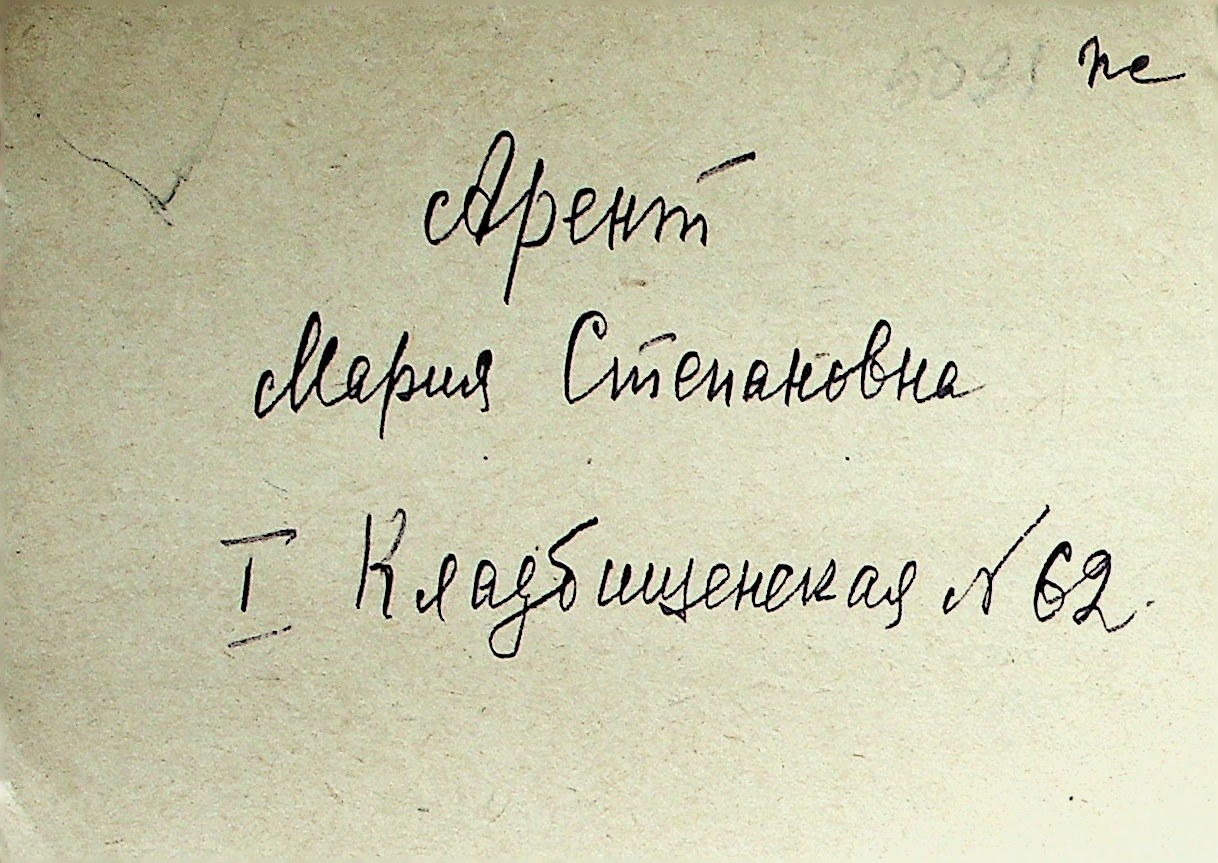 Арент
Мария Степановна
I Кладбищенская № 62.